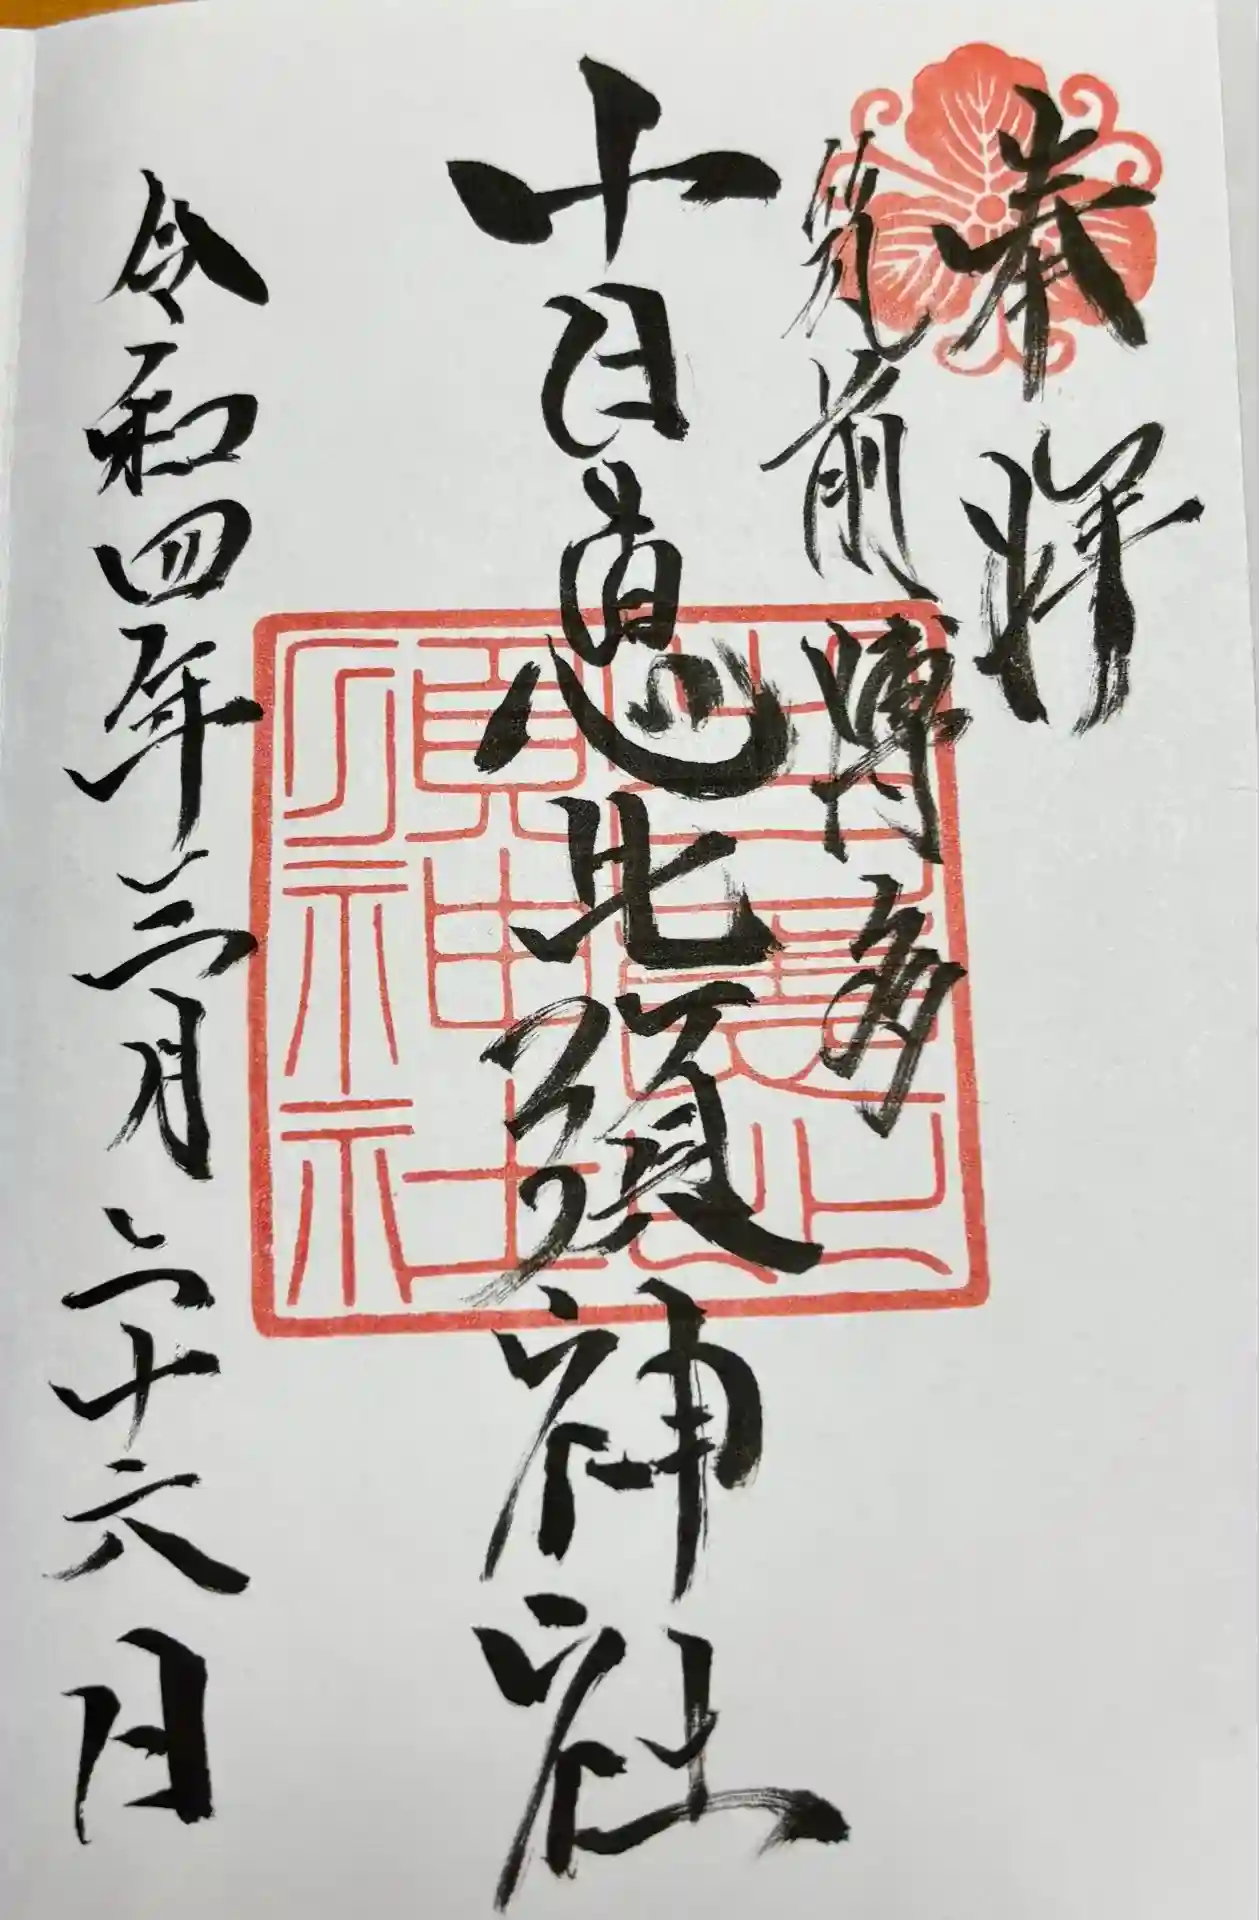 奉拝
筑前博多
十日恵比須神社
令和四年三月二十六日
須神社